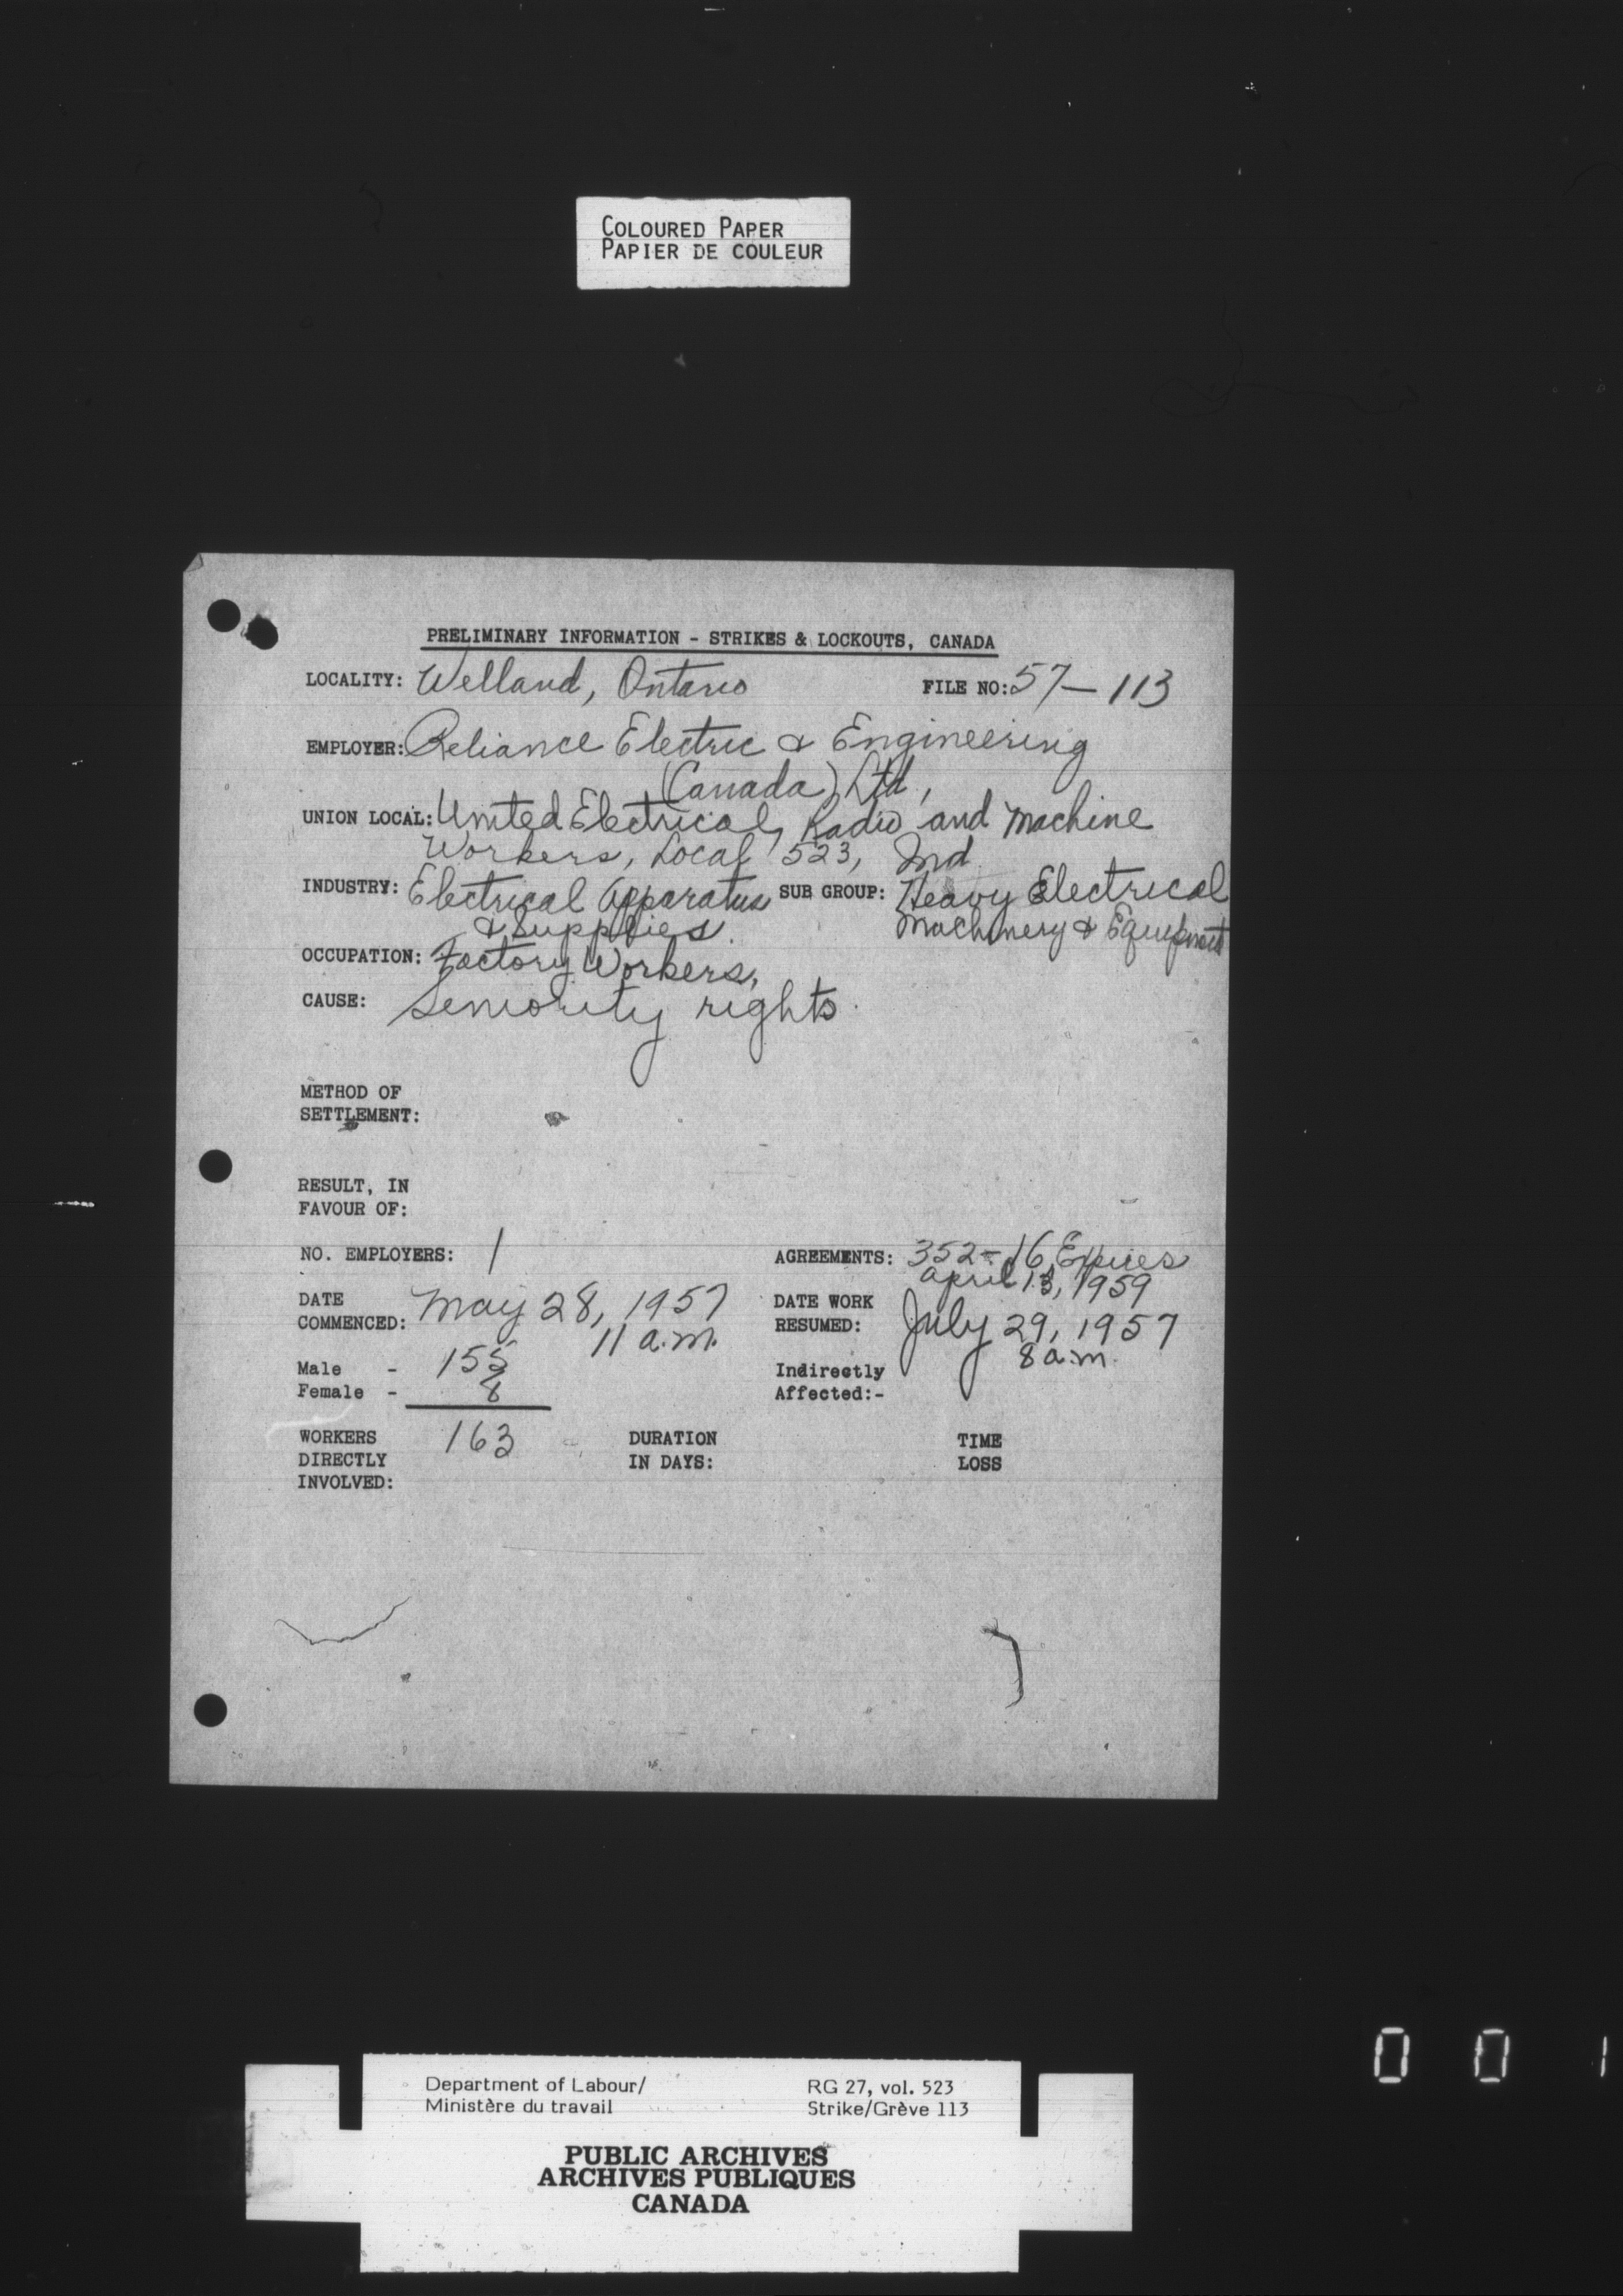 COLOURED PAPER
PAPIER DE COULEUR
PRELIMINARY INFORMATION - STRIKES & LOCKOUTS, CANADA
LOCALITY: Welland, Ontario FILE NO: 57-113
EMPLOYER: Reliance Electric & Engineering
(Canada) Ltd,
UNION LOCAL: United Electrical, Radio and Machine
Workers, Local 523, Ind
INDUSTRY: Electrical Apparatus SUB GROUP: Heavy Electrical
& Supplies. Machinery & Equipment
OCCUPATION: Factory Workers.
CAUSE: Seniority rights.
METHOD OF
SETTLEMENT:
RESULT, IN
FAVOUR OF:
NO. EMPLOYERS: 1 AGREEMENTS: 352-16 Expires
April 13, 1959
DATE
COMMENCED: May 28, 1957 DATE WORK
RESUMED: July 29, 1957
11 a.m. 8 a.m.
Male - 155 Indirectly
Female - 8 Affected:-
WORKERS 163 DURATION TIME
DIRECTLY IN DAYS: LOSS
INVOLVED:
001
Department of Labour/ RG 27, vol. 523
Ministère du travail Strike/Grève 113
PUBLIC ARCHIVES
ARCHIVES PUBLIQUES
CANADA